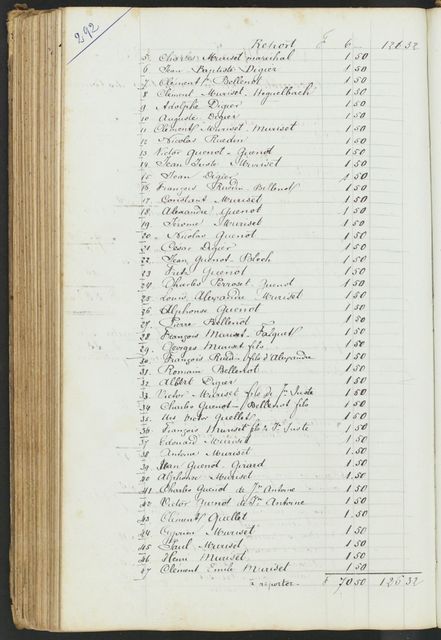 292
Report F 6 126 52
5 Charles Muriset maréchal 1 50
6 Jean Baptiste Digier 1 50
7 Clément Bellenot 1 50
8 Clément Muriset 1 50
9 Adolphe Digier 1 50
10 Auguste Digier 1 50
11 Clément Muriset-Muriset 1 50
12 Nicolas Ruedin 1 50
13 Victor Quenot-Quenot 1 50
14 Jean Juste Muriset 1 50
15 Jean Digier 1 50
16 François Ruedin-Bellenot 1 50
17 Constant Muriset 1 50
18 Alexandre Quenot 1 50
19 Jerome Muriset 1 50
20 Nicolas Quenot 1 50
21 César Digier 1 50
22 Jean Quenot-Bloch 1 50
23 Fritz Quenot 1 50
24 Charles Perroset-Quenot 1 50
25 Louis Alexandre Muriset 1 50
26 Alphonse Quenot 1 50
27 Pierre Bellenot 1 50
28 François Muriset-Falquet 1 50
29 Georges Muriset fils 1 50
30 François Ruedin fils d'Alexandre 1 50
31 Romain Bellenot 1 50
32 Albert Digier 1 50
33 Victor Muriset fils de Jn Juste 1 50
34 Charles Quenot-Bellenot fils 1 50
35 Victor Quellet 1 50
36 François Muriset fils Jn Juste 1 50
37 Edouard Muriset 1 50
38 Antoine Muriset 1 50
39 Jean Quenot-Girard 1 50
40 Alphonse Muriset 1 50
41 Charles Quenot de Jn Antoine 1 50
42 Victor Quenot de Jn Antoine 1 50
43 Clément Quellet 1 50
44 Cyprien Muriset 1 50
45 Paul Muriset 1 50
46 Henri Muriset 1 50
47 Clement Emile Muriset 1 50
à reporter F 70 50 126 52